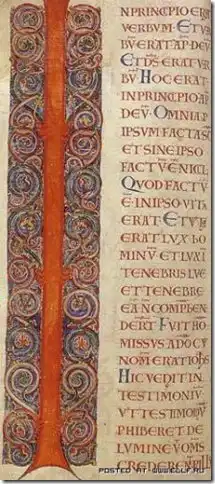 NPRINCIPIO ERAT
VERBUM ET VER
BU ERAT AP DEV
ET DS ERAT VER
BU HOC ERAT
IN PRINCIPIO AP
DEV OMNIA P
IPSVM FACTA S
ET SINE IPSO
FACTV E NICL
QVOD FACTV
E IN IPSO VITA
ERAT ET VITA
ERAT LVX HO
MINV ET LVX I
TENEBRIS LVC
ET TENEBRE
EA N COMPHEN
DERT FVIT HO
MISSVS A DO CV
NOM ERAT IOHS
HIC VENIT IN
TESTIMONIV
VT TESTIMONIV
PHIBERET DE
LVMINE V OMS
CREDERENT
POSTED AT